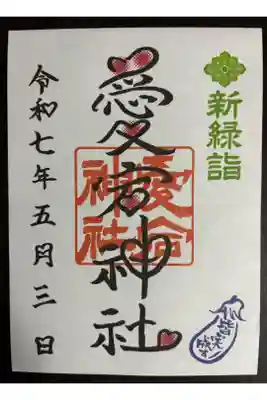 新緑詣
愛宕神社
愛宕神社
令和七年五月三日
皆笑